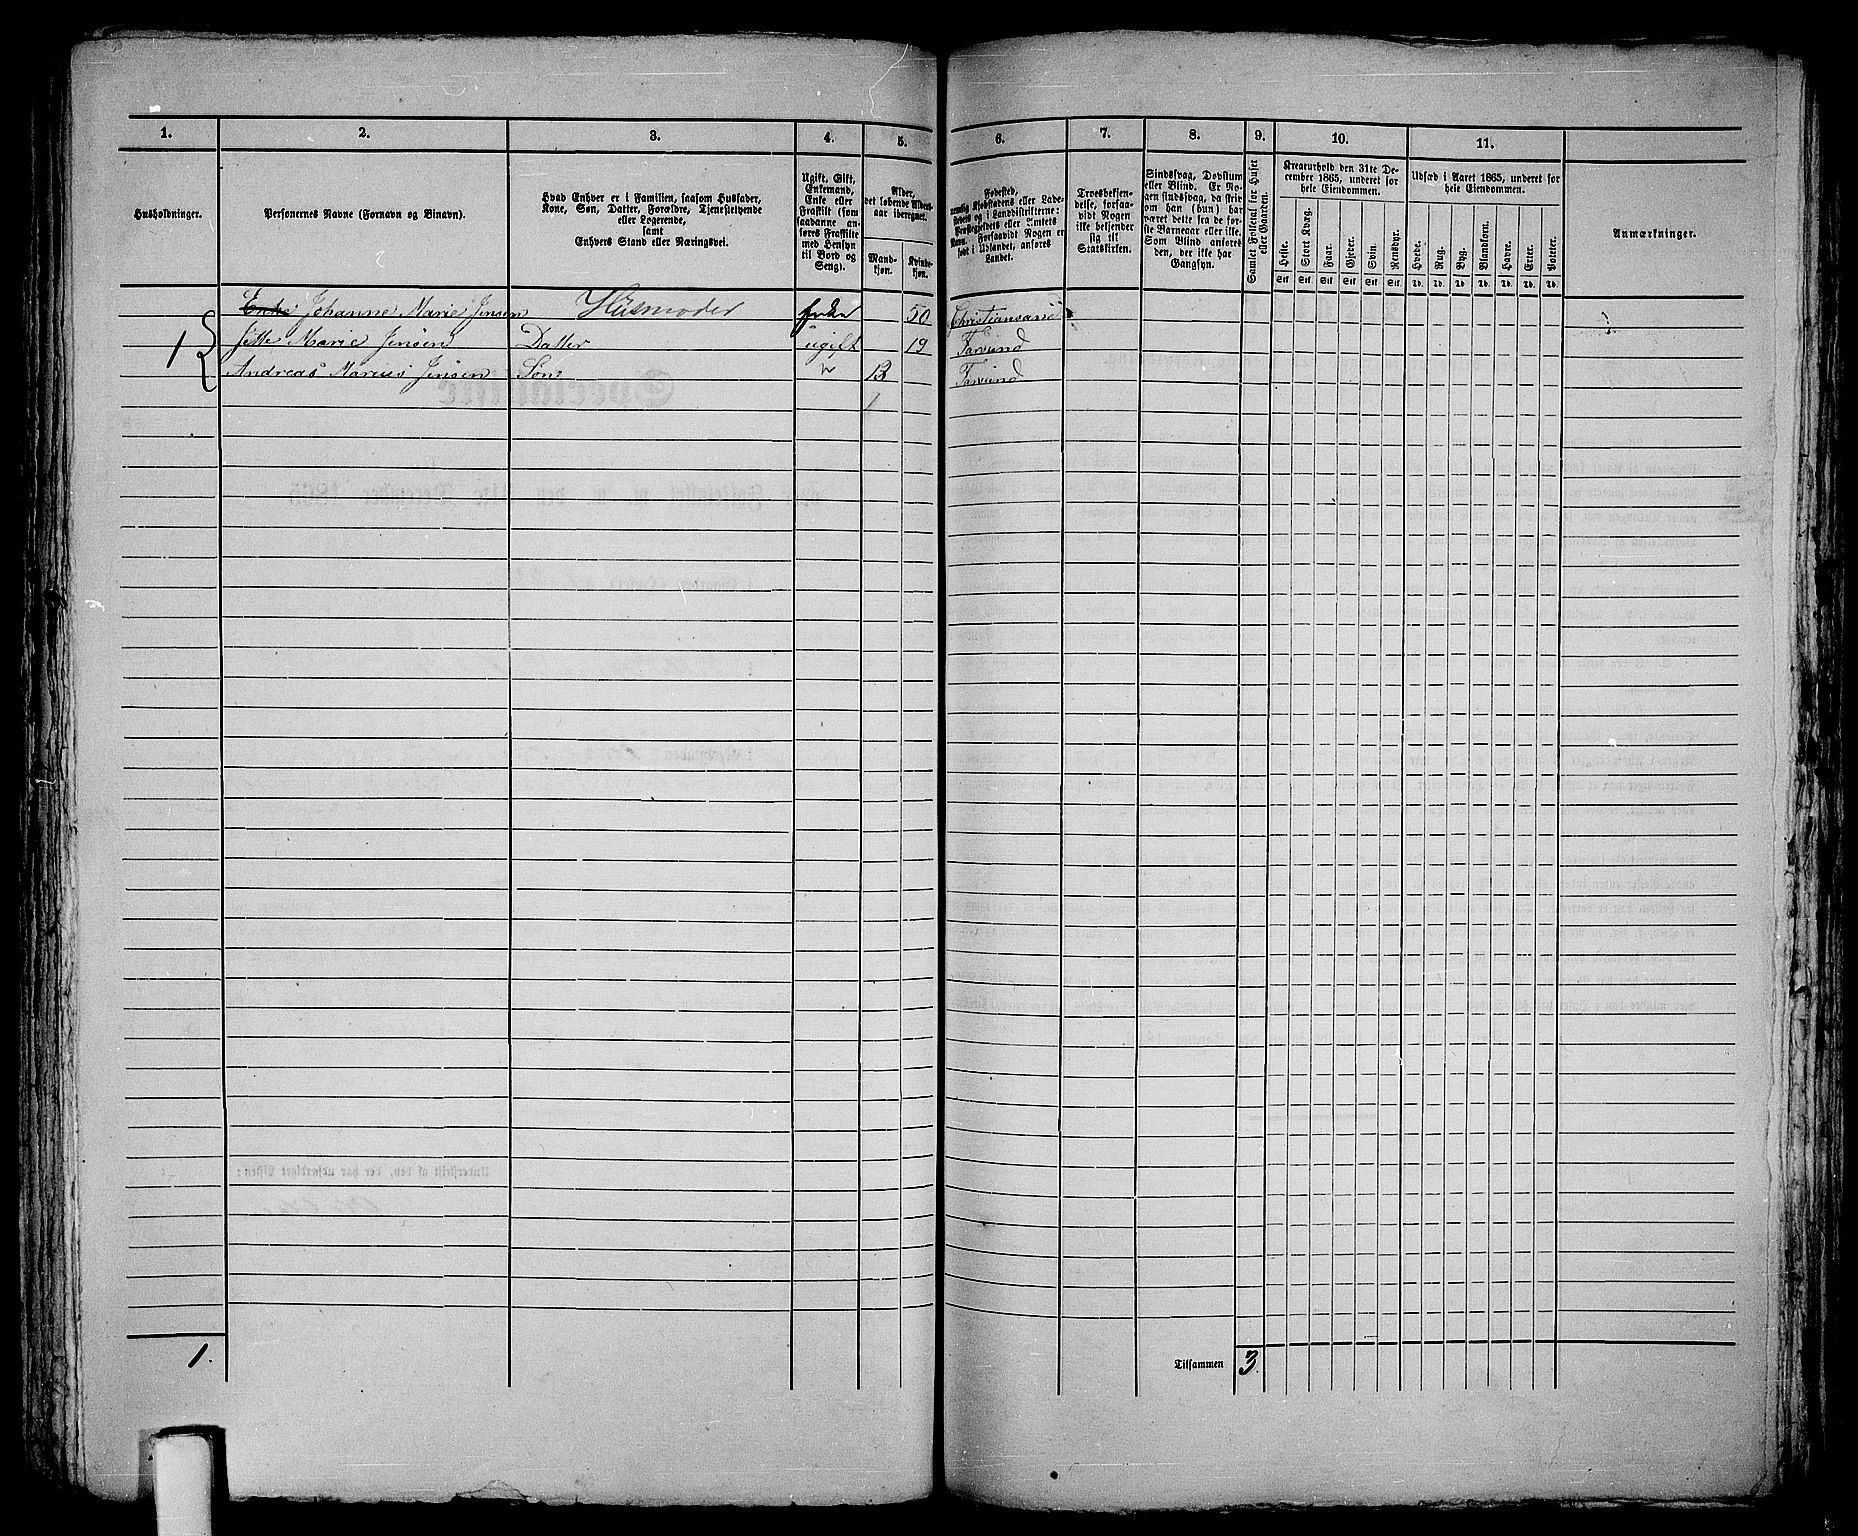 1. 2. 3. 4. 5. 6. 7. 8. 9. 10. 11.
Husholdninger.
Personernes Navne (Fornavn og Binavn).
Hvad Enhver er i Familien, saasom Husfader,
Kone, Søn, Datter, Forældre, Tjenestetyende
eller Logerende,
samt
Enhvers Stand eller Næringsvei.
Ugift, Gift,
Enkemand,
Enke eller
Fraskilt (som
saadanne an-
føres Fraskilte
med Hensyn
til Bord og
Seng).
Alder,
det løbende Alders-
aar iberegnet.
Mand-
kjøn.
Kvinde-
kjøn.
Fødested,
nemlig Kjøbstadens eller Lade-
stedets og i Landdistrikterne:
Præstegjeldets eller Amtets
Navn. Forsaavidt Nogen er
født i Udlandet, anføres
Landet.
Troesbekjen-
delse, forsaa-
vidt Nogen
ikke bekjender
sig til
Statskirken.
Sindssvag, Døvstum
eller Blind. Er No-
gen sindssvag, da skriv
om han (hun) har
været dette fra de før-
ste Barneaar eller ikke.
Som Blind anføres
den, der ikke har
Gangsyn.
Samlet Folketal for Huset
eller Gaarden.
Kreaturhold den 31te De-
cember 1865, underet for
hele Eiendommen.
Heste. Stort Kvæg. Faar. Gjeder. Svin. Rensdyr.
Stk. Stk. Stk. Stk. Stk. Stk.
Udsæd i Aaret 1865, underet for
hele Eiendommen.
Hvede. Rug. Byg. Blandkorn. Havre. Erter. Poteter.
Td. Td. Td. Td. Td. Td. Td.
Anmærkninger.
Enke Johanne Marie Jensen Husmoder Enke 50 Christiansand
1 Jette Marie Jensen Datter ugift 19 Farsund
Andreas Marius Jensen Søn 13 Farsund
1
1. Tilsammen 3